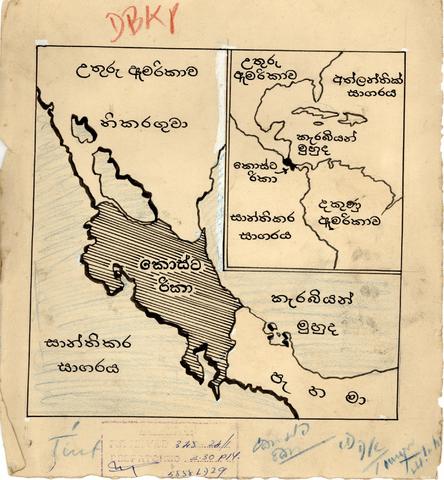 DBKP
උතුරු ඇමරිකාව
නිකරගුවා
කොස්ට
රිකා
සාන්තිකර
සාගරය
කැරබියන්
මුහුද
පැනමා
උතුරු
ඇමරිකාව
අත්ලන්තික්
සාගරය
කැරබියන්
මුහුද
කොස්ට
රිකා
සාන්තිකර
සාගරය
දකුණු
ඇමරිකාව
Tint